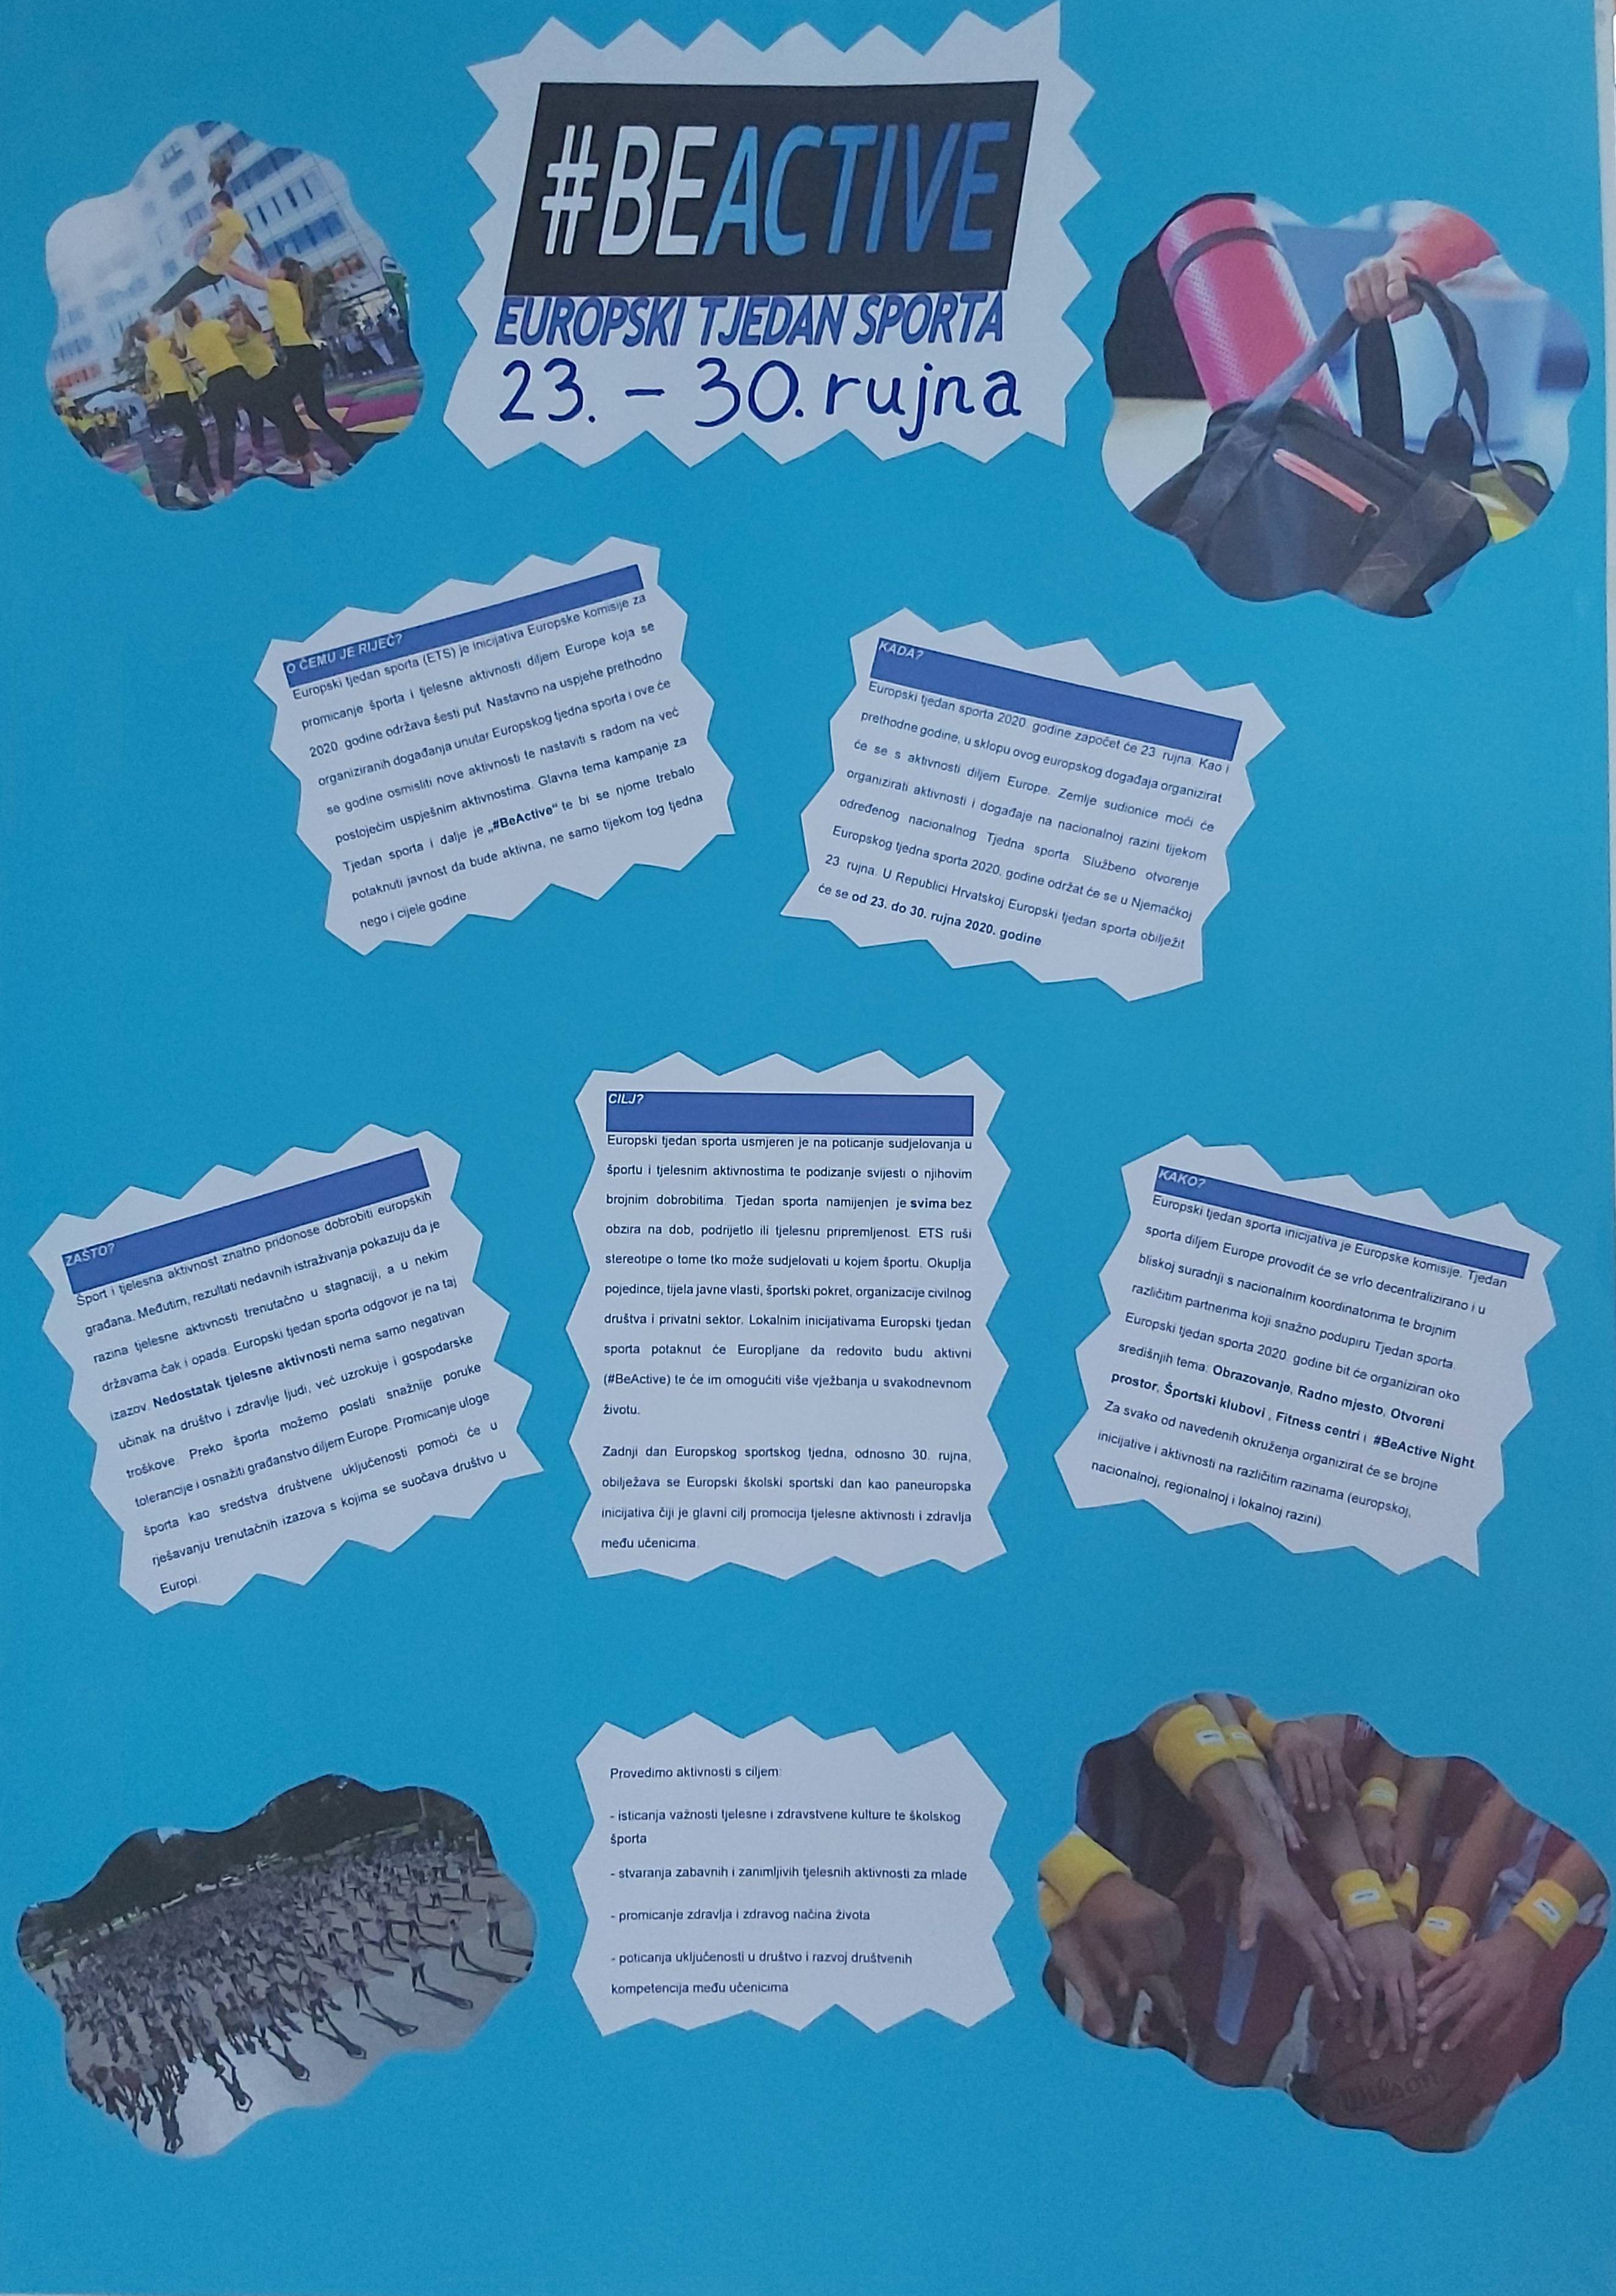 #BEACTIVE
EUROPSKI TJEDAN SPORTA
23. – 30. rujna
O ČEMU JE RIJEČ?
Europski tjedan sporta (ETS) je inicijativa Europske komisije za
promicanje športa i tjelesne aktivnosti diljem Europe koja se
2020. godine održava šesti put. Nastavno na uspjehe prethodno
organiziranih događanja unutar Europskog tjedna sporta i ove će
se godine osmisliti nove aktivnosti te nastaviti s radom na već
postojećim uspješnim aktivnostima. Glavna tema kampanje za
Tjedan sporta i dalje je „#BeActive“ te bi se njome trebalo
potaknuti javnost da bude aktivna, ne samo tijekom tog tjedna
nego i cijele godine
KADA?
Europski tjedan sporta 2020. godine započet će 23. rujna. Kao i
prethodne godine, u sklopu ovog europskog događaja organizirat
će se s aktivnosti diljem Europe. Zemlje sudionice moći će
organizirati aktivnosti i događaje na nacionalnoj razini tijekom
određenog nacionalnog Tjedna sporta. Službeno otvorenje
Europskog tjedna sporta 2020. godine održat će se u Njemačkoj
23. rujna. U Republici Hrvatskoj Europski tjedan sporta obilježit
će se od 23. do 30. rujna 2020. godine
ZAŠTO?
Šport i tjelesna aktivnost znatno pridonose dobrobiti europskih
građana. Međutim, rezultati nedavnih istraživanja pokazuju da je
razina tjelesne aktivnosti trenutačno u stagnaciji, a u nekim
državama čak i opada. Europski tjedan sporta odgovor je na taj
izazov. Nedostatak tjelesne aktivnosti nema samo negativan
učinak na društvo i zdravlje ljudi, već uzrokuje i gospodarske
troškove. Preko športa možemo poslati snažnije poruke
tolerancije i osnažiti građanstvo diljem Europe. Promicanje uloge
športa kao sredstva društvene uključenosti pomoći će u
rješavanju trenutačnih izazova s kojima se suočava društvo u
Europi.
CILJ?
Europski tjedan sporta usmjeren je na poticanje sudjelovanja u
športu i tjelesnim aktivnostima te podizanje svijesti o njihovim
brojnim dobrobitima. Tjedan sporta namijenjen je svima bez
obzira na dob, podrijetlo ili tjelesnu pripremljenost. ETS ruši
stereotipe o tome tko može sudjelovati u kojem športu. Okuplja
pojedince, tijela javne vlasti, športski pokret, organizacije civilnog
društva i privatni sektor. Lokalnim inicijativama Europski tjedan
sporta potaknut će Europljane da redovito budu aktivni
(#BeActive) te će im omogućiti više vježbanja u svakodnevnom
životu.
Zadnji dan Europskog sportskog tjedna, odnosno 30. rujna,
obilježava se Europski školski sportski dan kao paneuropska
inicijativa čiji je glavni cilj promocija tjelesne aktivnosti i zdravlja
među učenicima.
KAKO?
Europski tjedan sporta inicijativa je Europske komisije. Tjedan
sporta diljem Europe provodit će se vrlo decentralizirano i u
bliskoj suradnji s nacionalnim koordinatorima te brojnim
različitim partnerima koji snažno podupiru Tjedan sporta.
Europski tjedan sporta 2020. godine bit će organiziran oko
središnjih tema: Obrazovanje, Radno mjesto, Otvoreni
prostor, Športski klubovi , Fitness centri i #BeActive Night.
Za svako od navedenih okruženja organizirat će se brojne
inicijative i aktivnosti na različitim razinama (europskoj,
nacionalnoj, regionalnoj i lokalnoj razini).
Provedimo aktivnosti s ciljem:
- isticanja važnosti tjelesne i zdravstvene kulture te školskog
športa
- stvaranja zabavnih i zanimljivih tjelesnih aktivnosti za mlade
- promicanje zdravlja i zdravog načina života
- poticanja uključenosti u društvo i razvoj društvenih
kompetencija među učenicima
Wilson